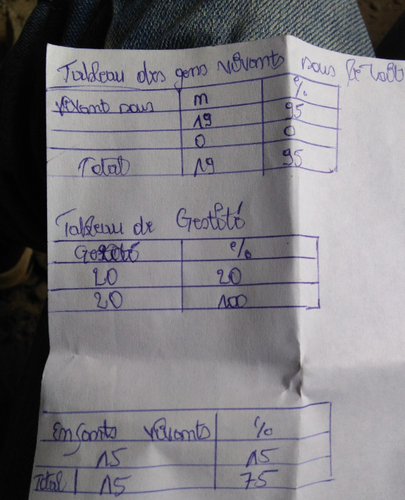 Tableau des gens vivants sous le toit
vivant sous n %
19 95
0 0
Total 19 95
Tableau de Gestité
Gestité %
20 20
20 100
Enfants vivants %
15 15
Total 15 75